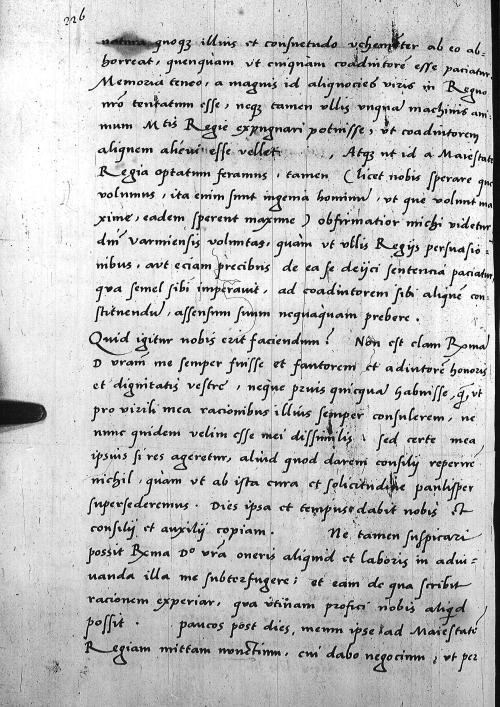 226
natura quoq3 illius et consuetudo vehementer ab eo ab-
horreat, quenquam vt cuiquam coadiutorē esse paciatur
Memoria teneo, a magnis id aliquocies viris in Regno
nro tentatum esse, neq3 tamen vllis unquā machinis ani-
mum Mtis Regie expugnari potuisse, ut coadiutorem
aliquem alicui esse vellet , Atq3 ut id a Maiestate
Regia optatum feramus, tamen (licet nobis sperare quo
volumus, ita enim sunt ingenia hominū, ut que volunt ma
xime, eadem sperent maxime) obfirmatior michi videtur
dni varmiensis voluntas, quam ut vllis Regijs persuasio-
nibus, aut eciam precibus de ea se deijci sentencia paciatur,
qua semel sibi imperauit, ad coadiutorem sibi aliquē con-
stituendū, assensum suum nequaquam prebere.
Quid igitur nobis erit faciendum? Non est clam Rxma
D vram me semper fuisse et fautorem et adiutorē honoris
et dignitatis vestre, neque prius quicqua habuisse, q̄, vt
pro virili mea racionibus illius semper consulerem, ne
nunc quidem velim esse mei dissimilis, sed certe mea
ipsius si res ageretur, aliud quod darem consilij reperirē
nichil, quàm vt ab ista cura et solicitudine paulisper
supersederemus. Dies ipsa et tempus dabit nobis et
consilij et auxilij copiam. Ne tamen suspicari
possit Rxma Do vrā oneris aliquid et laboris in adiu-
uanda illa me subterfugere; et eam de qua scribit
racionem experiar, qua vtinam profici nobis aliqd
possit. paucos post dies, meum ipse ad Maiestatē
Regiam mittam nunctium, cui dabo negocium, ut per